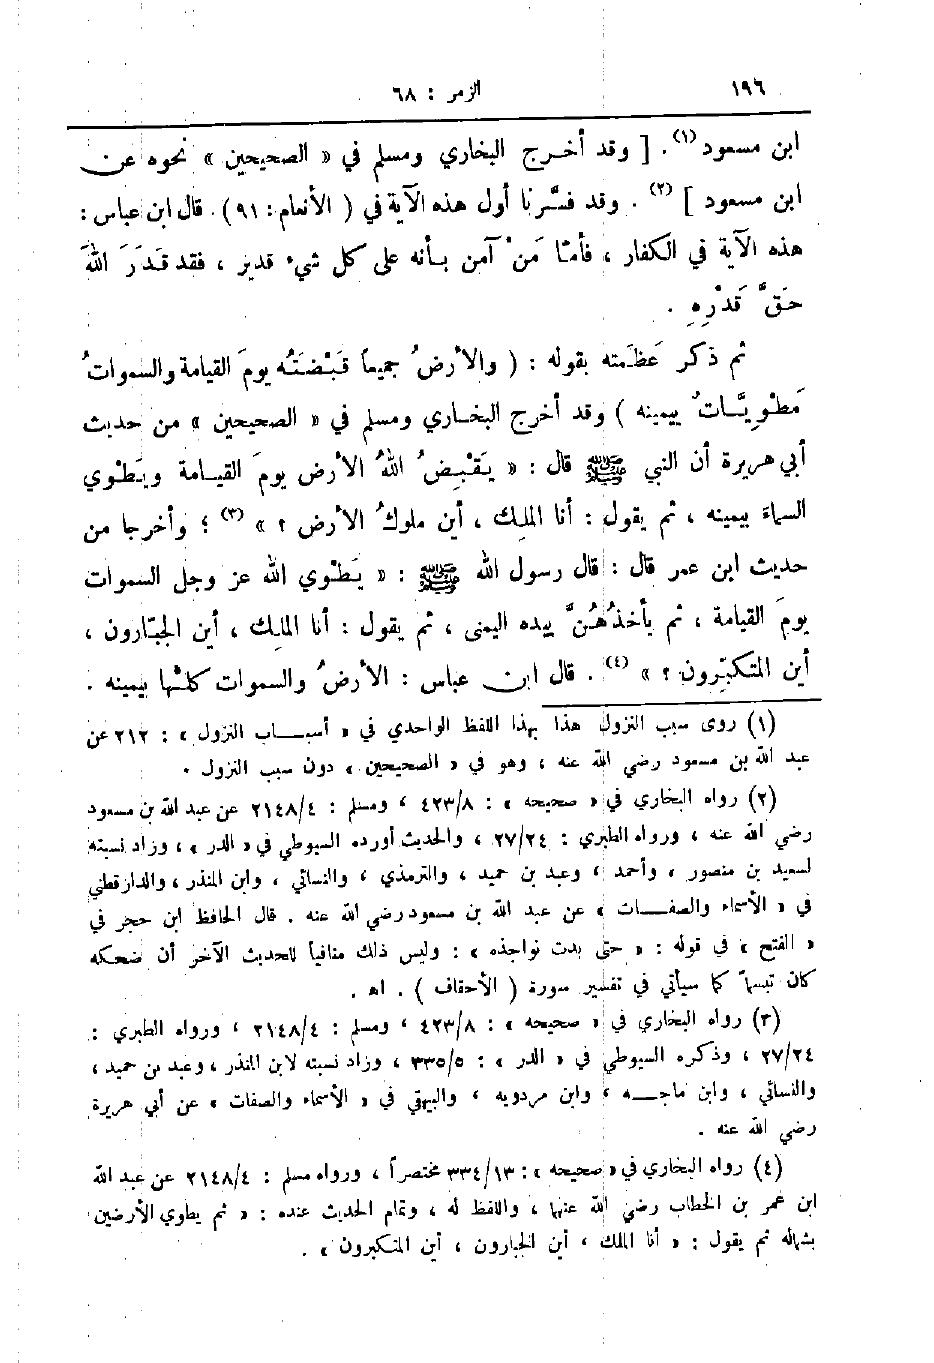 ١٩٦
الزمر : ٦٨
ابن مسعود (١) . [ وقد أخرج البخاري ومسلم في « الصحيحين » نحوه عن
ابن مسعود ] (٢) . وقد فسَّرنا أول هذه الآية في ( الأنعام : ٩١ ) . قال ابن عباس :
هذه الآية في الكفار ، فأمّا مَنْ آمن بأنه على كل شيء قدير ، فقد قَدَرَ اللهَ
حَقَّ قَدْرِهِ .
ثم ذكر عَظَمته بقوله : ( والأرضُ جميعاً قَبْضَتُه يومَ القيامة والسموات
مَطْوِيَّاتٌ بيمينه ) وقد أخرج البخاري ومسلم في « الصحيحين » من حديث
أبي هريرة أن النبي ﷺ قال : « يَقْبِضُ اللهُ الأرض يومَ القيامة ويَطْوي
السماءَ بيمينه ، ثم يقول : أنا الملِك ، أين ملوكُ الأرض ؟ » (٣) ؛ وأخرجا من
حديث ابن عمر قال : قال رسول الله ﷺ : « يَطْوي الله عز وجل السموات
يومَ القيامة ، ثم يأخذُهُنَّ بيده اليمنى ، ثم يقول : أنا الملِك ، أين الجبّارون ،
أين المتكبِّرون ؟ » (٤) . قال ابن عباس : الأرضُ والسموات كلُّها بيمينه .
(١) روى سبب النزول هذا بهذا اللفظ الواحدي في « أسباب النزول » : ٢١٢ عن
عبد الله بن مسعود رضي الله عنه ، وهو في « الصحيحين » دون سبب النزول .
(٢) رواه البخاري في « صحيحه » : ٤٢٣/٨ ، ومسلم : ٢١٤٨/٤ عن عبد الله بن مسعود
رضي الله عنه ، ورواه الطبري : ٢٧/٢٤ ، والحديث أورده السيوطي في « الدر » ، وزاد نسبته
لسعيد بن منصور ، وأحمد ، وعبد بن حميد ، والترمذي ، والنسائي ، وابن المنذر ، والدارقطني
في « الأسماء والصفات » عن عبد الله بن مسعود رضي الله عنه . قال الحافظ ابن حجر في
« الفتح » في قوله : « حتى بدت نواجذه » : وليس ذلك منافياً للحديث الآخر أن ضحكه
كان تبسماً كما سيأتي في تفسير سورة ( الأحقاف ) . اه .
(٣) رواه البخاري في « صحيحه » : ٤٢٣/٨ ، ومسلم : ٢١٤٨/٤ ، ورواه الطبري :
٢٧/٢٤ ، وذكره السيوطي في « الدر » : ٣٣٥/٥ ، وزاد نسبته لابن المنذر ، وعبد بن حميد ،
والنسائي ، وابن ماجه ، وابن مردويه ، والبيهقي في « الأسماء والصفات » عن أبي هريرة
رضي الله عنه .
(٤) رواه البخاري في « صحيحه » : ٣٣٤/١٣ مختصراً ، ورواه مسلم : ٢١٤٨/٤ عن عبد الله
ابن عمر بن الخطاب رضي الله عنهما ، واللفظ له ، وتمام الحديث عنده : « ثم يطوي الأرضين
بشماله ثم يقول : « أنا الملك ، أين الجبارون ، أين المتكبرون » .